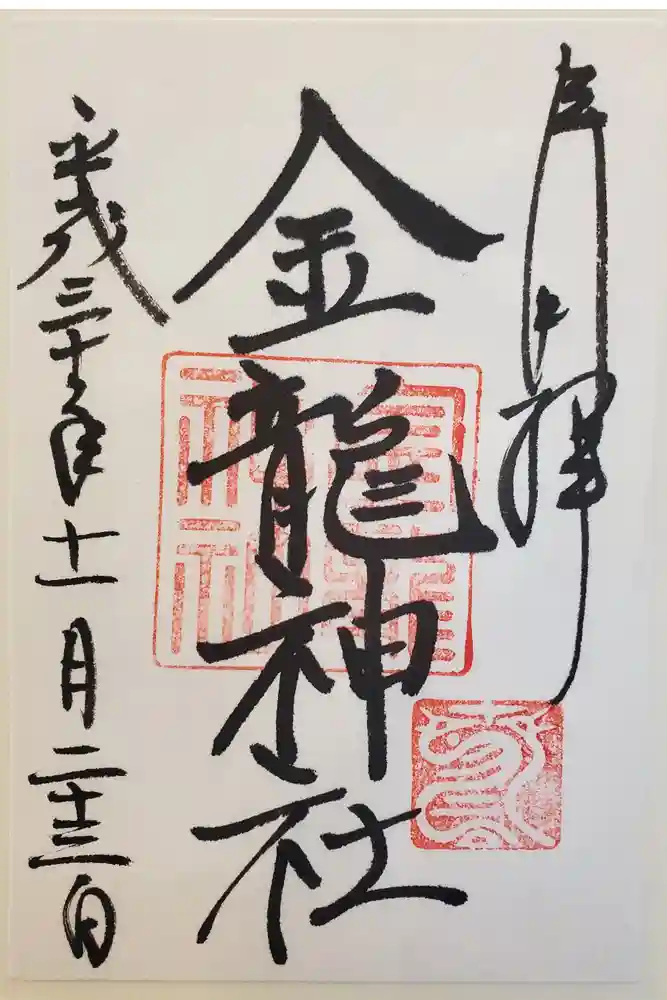 拝
金龍神社
平成三十年十一月二十三日